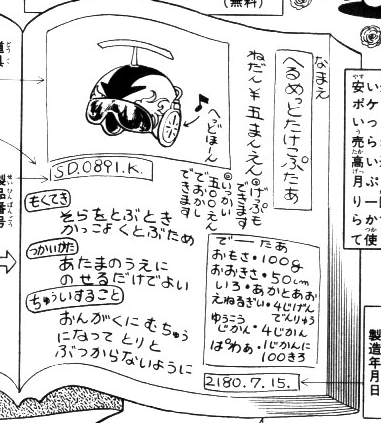 (無料)
なまえ
へるめっとたけっぷたあ
ねだん¥五まんえん
●げっぷも
できます
●いっかい
五〇〇えん
でおかし
できます
へっどほーん
SD.0891.K.
もくてき
そらをとぶとき
かっこよくとぶため
つかいかた
あたまのうえに
のせるだけでよい
ちゅういすること
おんがくにむちゅう
になってとりと
ぶつからないように
でーたあ
おもさ・100g
おおきさ・50cm
いろ・あかとあお
えねるぎい・4じげん
でんりゅう
ゆうこう
じかん・4じかん
ぱわあ・1じかんに
100きろ
2180.7.15.
製品番号
せいひんばんごう
製造年月日